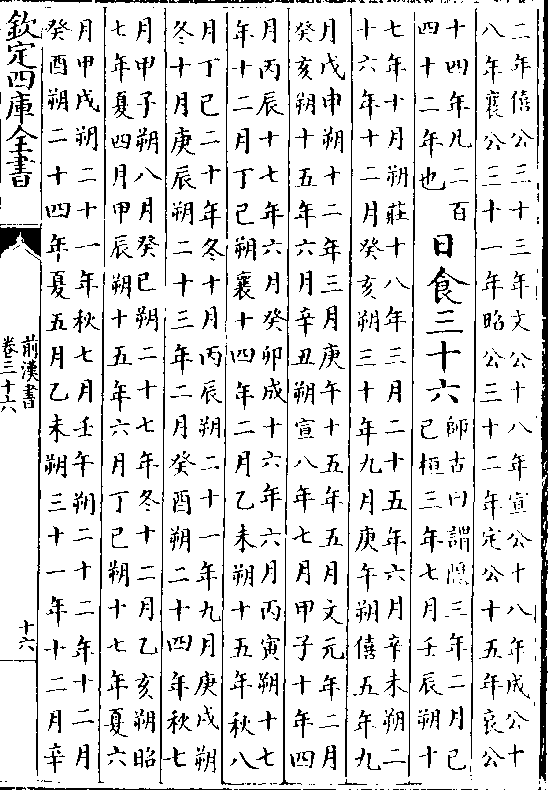 二年僖公三十三年文公十八年宣公十八年成公十
八年襄公三十一年昭公三十二年定公十五年哀公
十四年凡二百
四十二年也
日食三十六
師古曰謂隱三年二月己
巳桓三年七月壬辰朔十
七年十月朔莊十八年三月二十五年六月辛未朔二
十六年十二月癸亥朔三十年九月庚午朔僖五年九
月戊申朔十二年三月庚午十五年五月文元年二月
癸亥朔十五年六月辛丑朔宣八年七月甲子十年四
月丙辰十七年六月癸卯成十六年六月丙寅朔十七
年十二月丁巳朔襄十四年二月乙未朔十五年秋八
月丁巳二十年冬十月丙辰朔二十一年九月庚戌朔
冬十月庚辰朔二十三年二月癸酉朔二十四年秋七
月甲子朔八月癸巳朔二十七年冬十二月乙亥朔昭
七年夏四月甲辰朔十五年六月丁巳朔十七年夏六
月甲戌朔二十一年秋七月壬午朔二十二年十二月
癸酉朔二十四年夏五月乙未朔三十一年十二月辛
欽定四庫全書
前漢書
卷三十六
十六